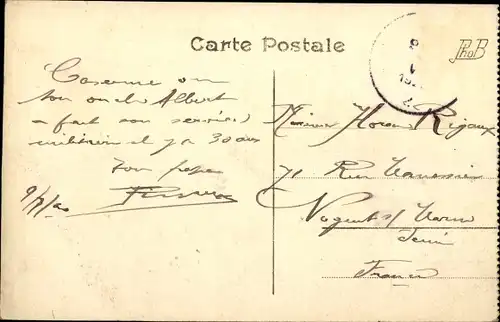 Carte Postale
PhoB
Caserne ou
ton oncle Albert
a fait son service
militaire il y a 30 ans
Ton papa
Monsieur Rigaux
71 Rue
Nogent s/ Marne
Seine
France